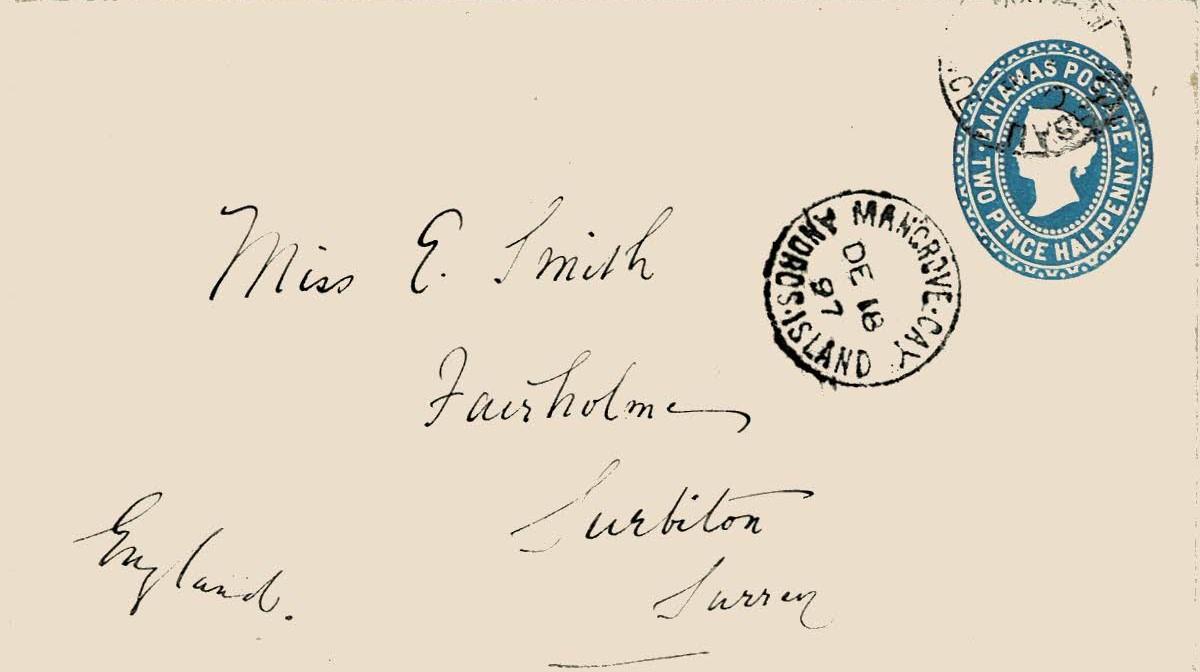 BAHAMAS POSTAGE
TWO PENCE HALFPENNY
MANGROVE·CAY
ANDROS·ISLAND
DE 18
97
Miss E. Smith
Fairholme
Surbiton
Surrey
England.